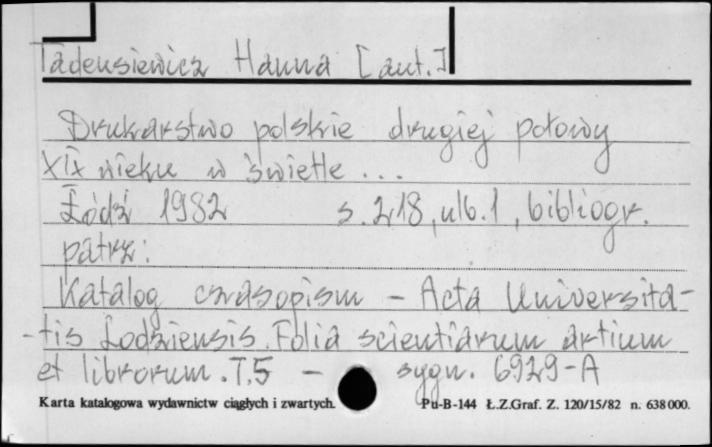 Tadeusiewicz Hanna [aut.]
Drukarstwo polskie drugiej połowy
XIX wieku w świetle ...
Łódź 1982 s. 218, ulb. 1, bibliogr.
patrz:
Katalog czasopism - Acta Universita-
-tis Lodziensis. Folia scientiarum artium
et librorum. T. 5 - sygn. 6929-A
Karta katalogowa wydawnictw ciągłych i zwartych. Pu-B-144 Ł.Z.Graf. Z. 120/15/82 n. 638000.